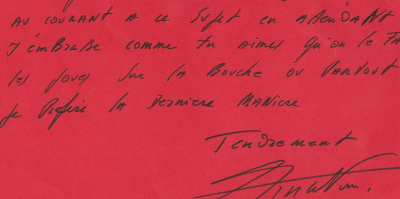 AU COURANT A CE SUJET EN ATTENDANT
J'EMBRASSE COMME TU AIMES QU'ON LE FA
les joues SUR LA BOUCHE OU PARTOUT
Je Préfère LA DERNIERE MANIERE
Tendrement